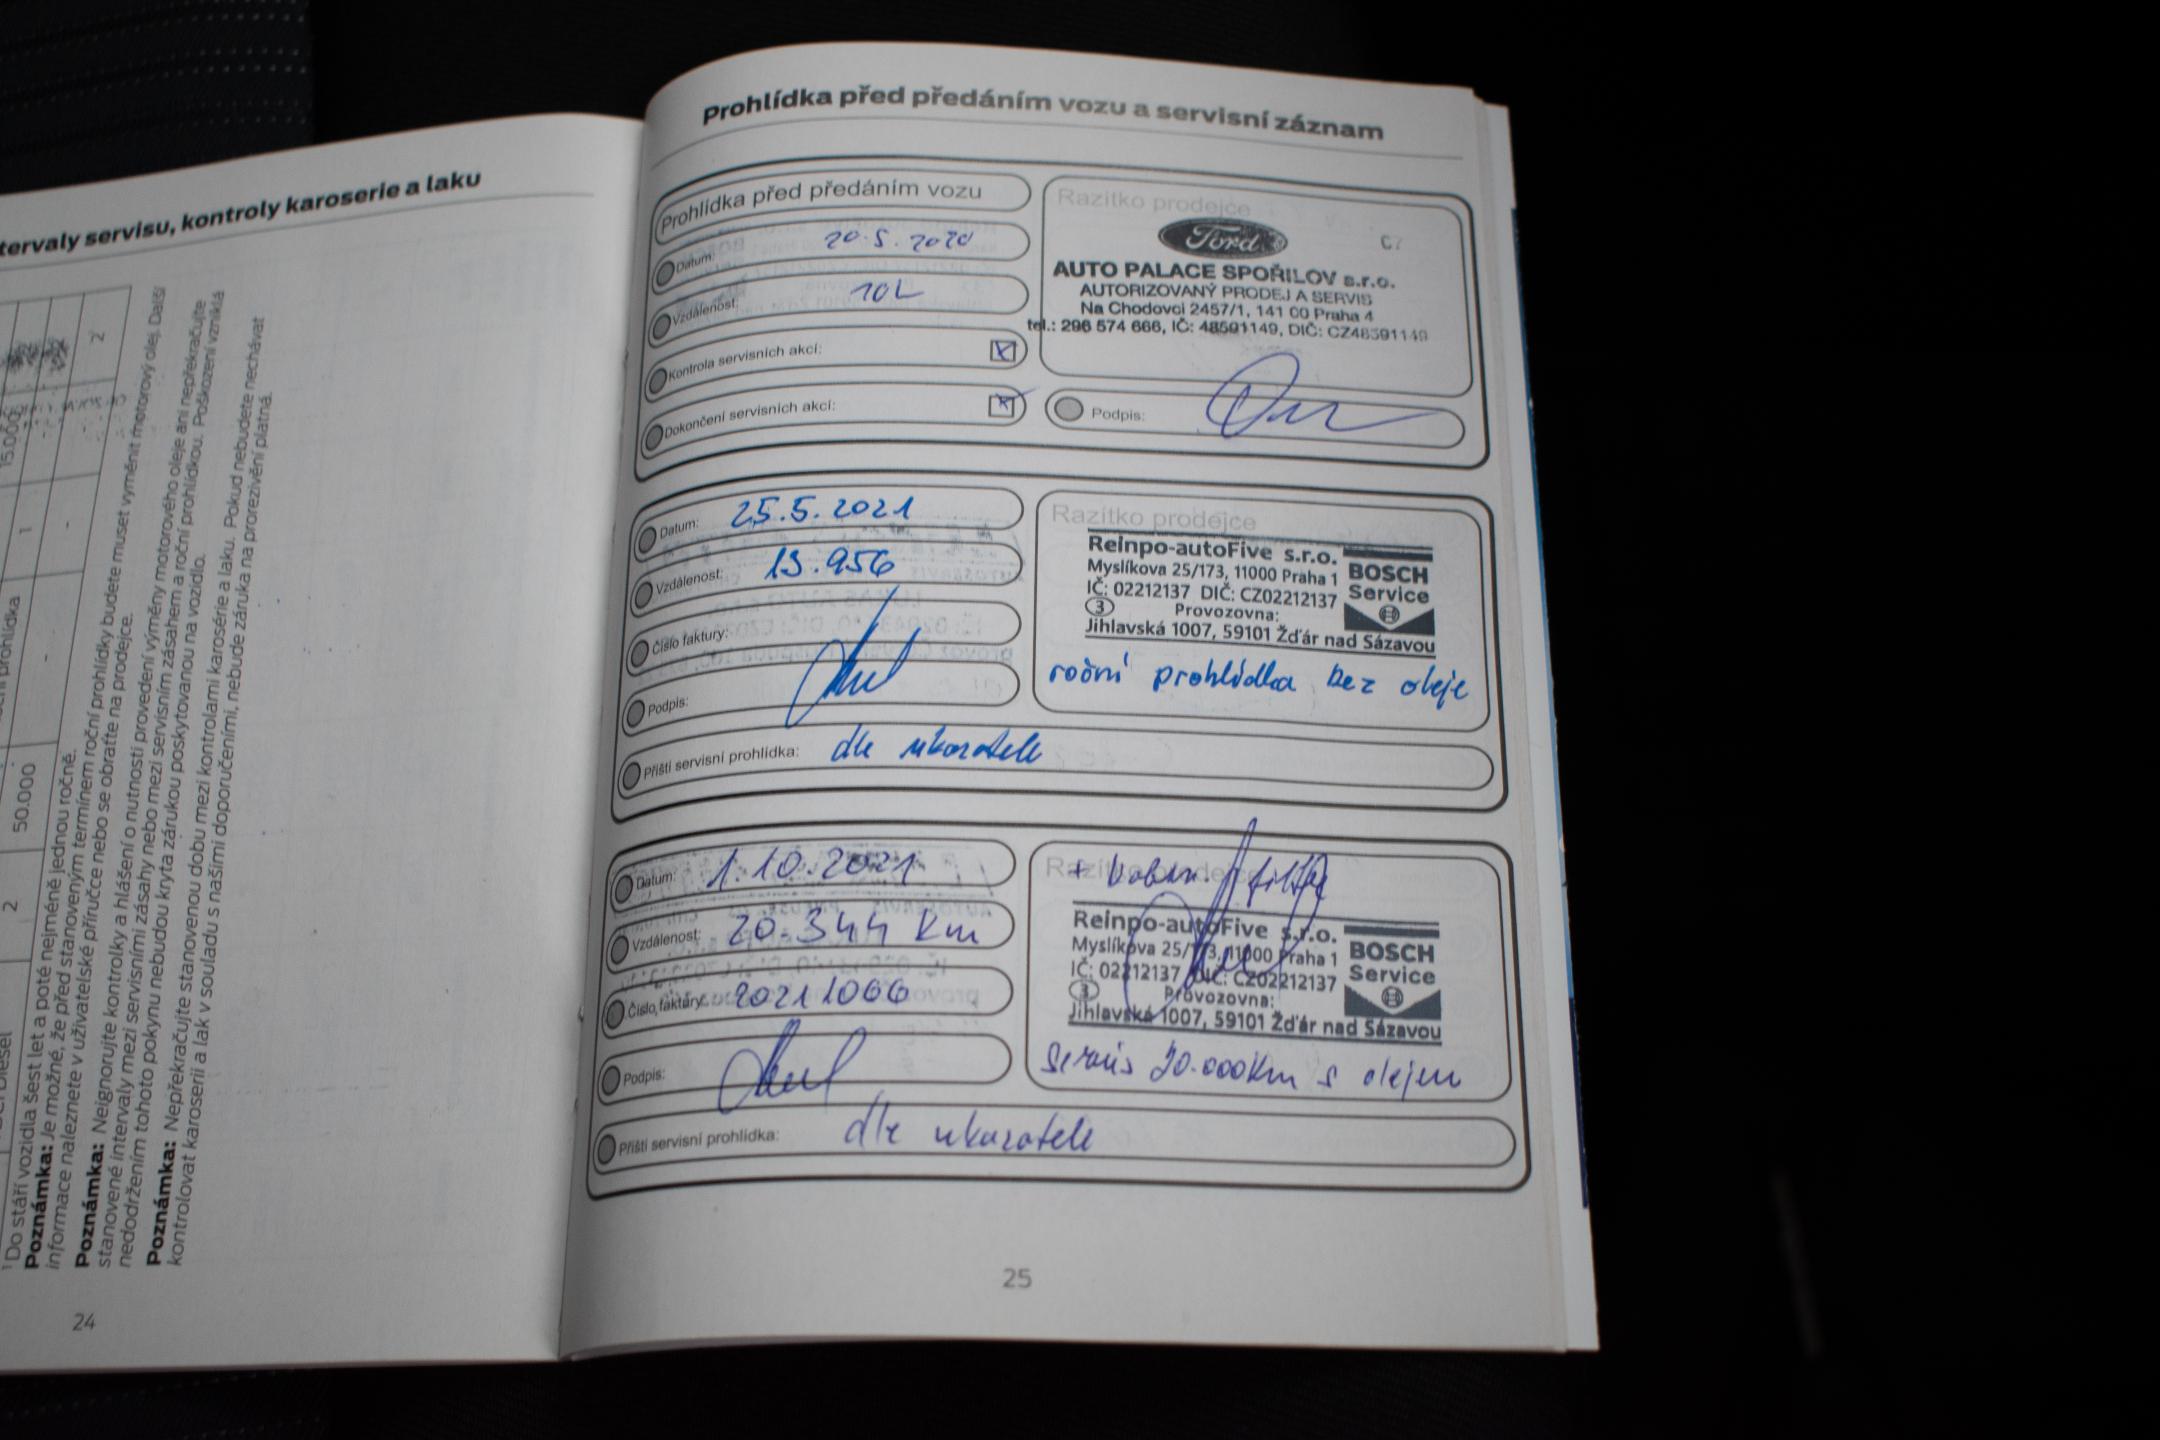 tervaly servisu, kontroly karoserie a laku
prohlídka
15.000
1
2
-
-
2
50.000
Diesel
¹ Do stáří vozidla šest let a poté nejméně jednou ročně.
Poznámka: Je možné, že před stanoveným termínem roční prohlídky budete muset vyměnit motorový olej. Další
informace naleznete v uživatelské příručce nebo se obraťte na prodejce.
Poznámka: Neignorujte kontrolky a hlášení o nutnosti provedení výměny motorového oleje ani nepřekračujte
stanovené intervaly mezi servisními zásahy nebo mezi servisním zásahem a roční prohlídkou. Poškození vzniklá
nedodržením tohoto pokynu nebudou kryta zárukou poskytovanou na vozidlo.
Poznámka: Nepřekračujte stanovenou dobu mezi kontrolami karosérie a laku. Pokud nebudete nechávat
kontrolovat karoserii a lak v souladu s našimi doporučeními, nebude záruka na prorezivění platná.
24
Prohlídka před předáním vozu a servisní záznam
Prohlídka před předáním vozu
Datum: 20.5.2020
Vzdálenost: 10
Kontrola servisních akcí:
Dokončení servisních akcí:
Razítko prodejce
Ford
C7
AUTO PALACE SPOŘILOV s.r.o.
AUTORIZOVANÝ PRODEJ A SERVIS
Na Chodovci 2457/1, 141 00 Praha 4
tel.: 296 574 666, IČ: 48591149, DIČ: CZ48591149
Podpis:
Datum: 25.5.2021
Vzdálenost: 13.956
Číslo faktury:
Podpis:
Razítko prodejce
Reinpo-autoFive s.r.o.
Myslíkova 25/173, 11000 Praha 1
IČ: 02212137 DIČ: CZ02212137
3 Provozovna:
Jihlavská 1007, 59101 Žďár nad Sázavou
BOSCH
Service
roční prohlídka bez oleje
Příští servisní prohlídka: dle ukazatele
Datum: 1.10.2021
Vzdálenost: 20.344 km
Číslo faktury: 20211066
Podpis:
Razítko prodejce
+ kabin. filtr
Reinpo-autoFive s.r.o.
Myslíkova 25/173, 11000 Praha 1
IČ: 02212137 DIČ: CZ02212137
3 Provozovna:
Jihlavská 1007, 59101 Žďár nad Sázavou
BOSCH
Service
servis 20.000km s olejem
Příští servisní prohlídka: dle ukazatele
25